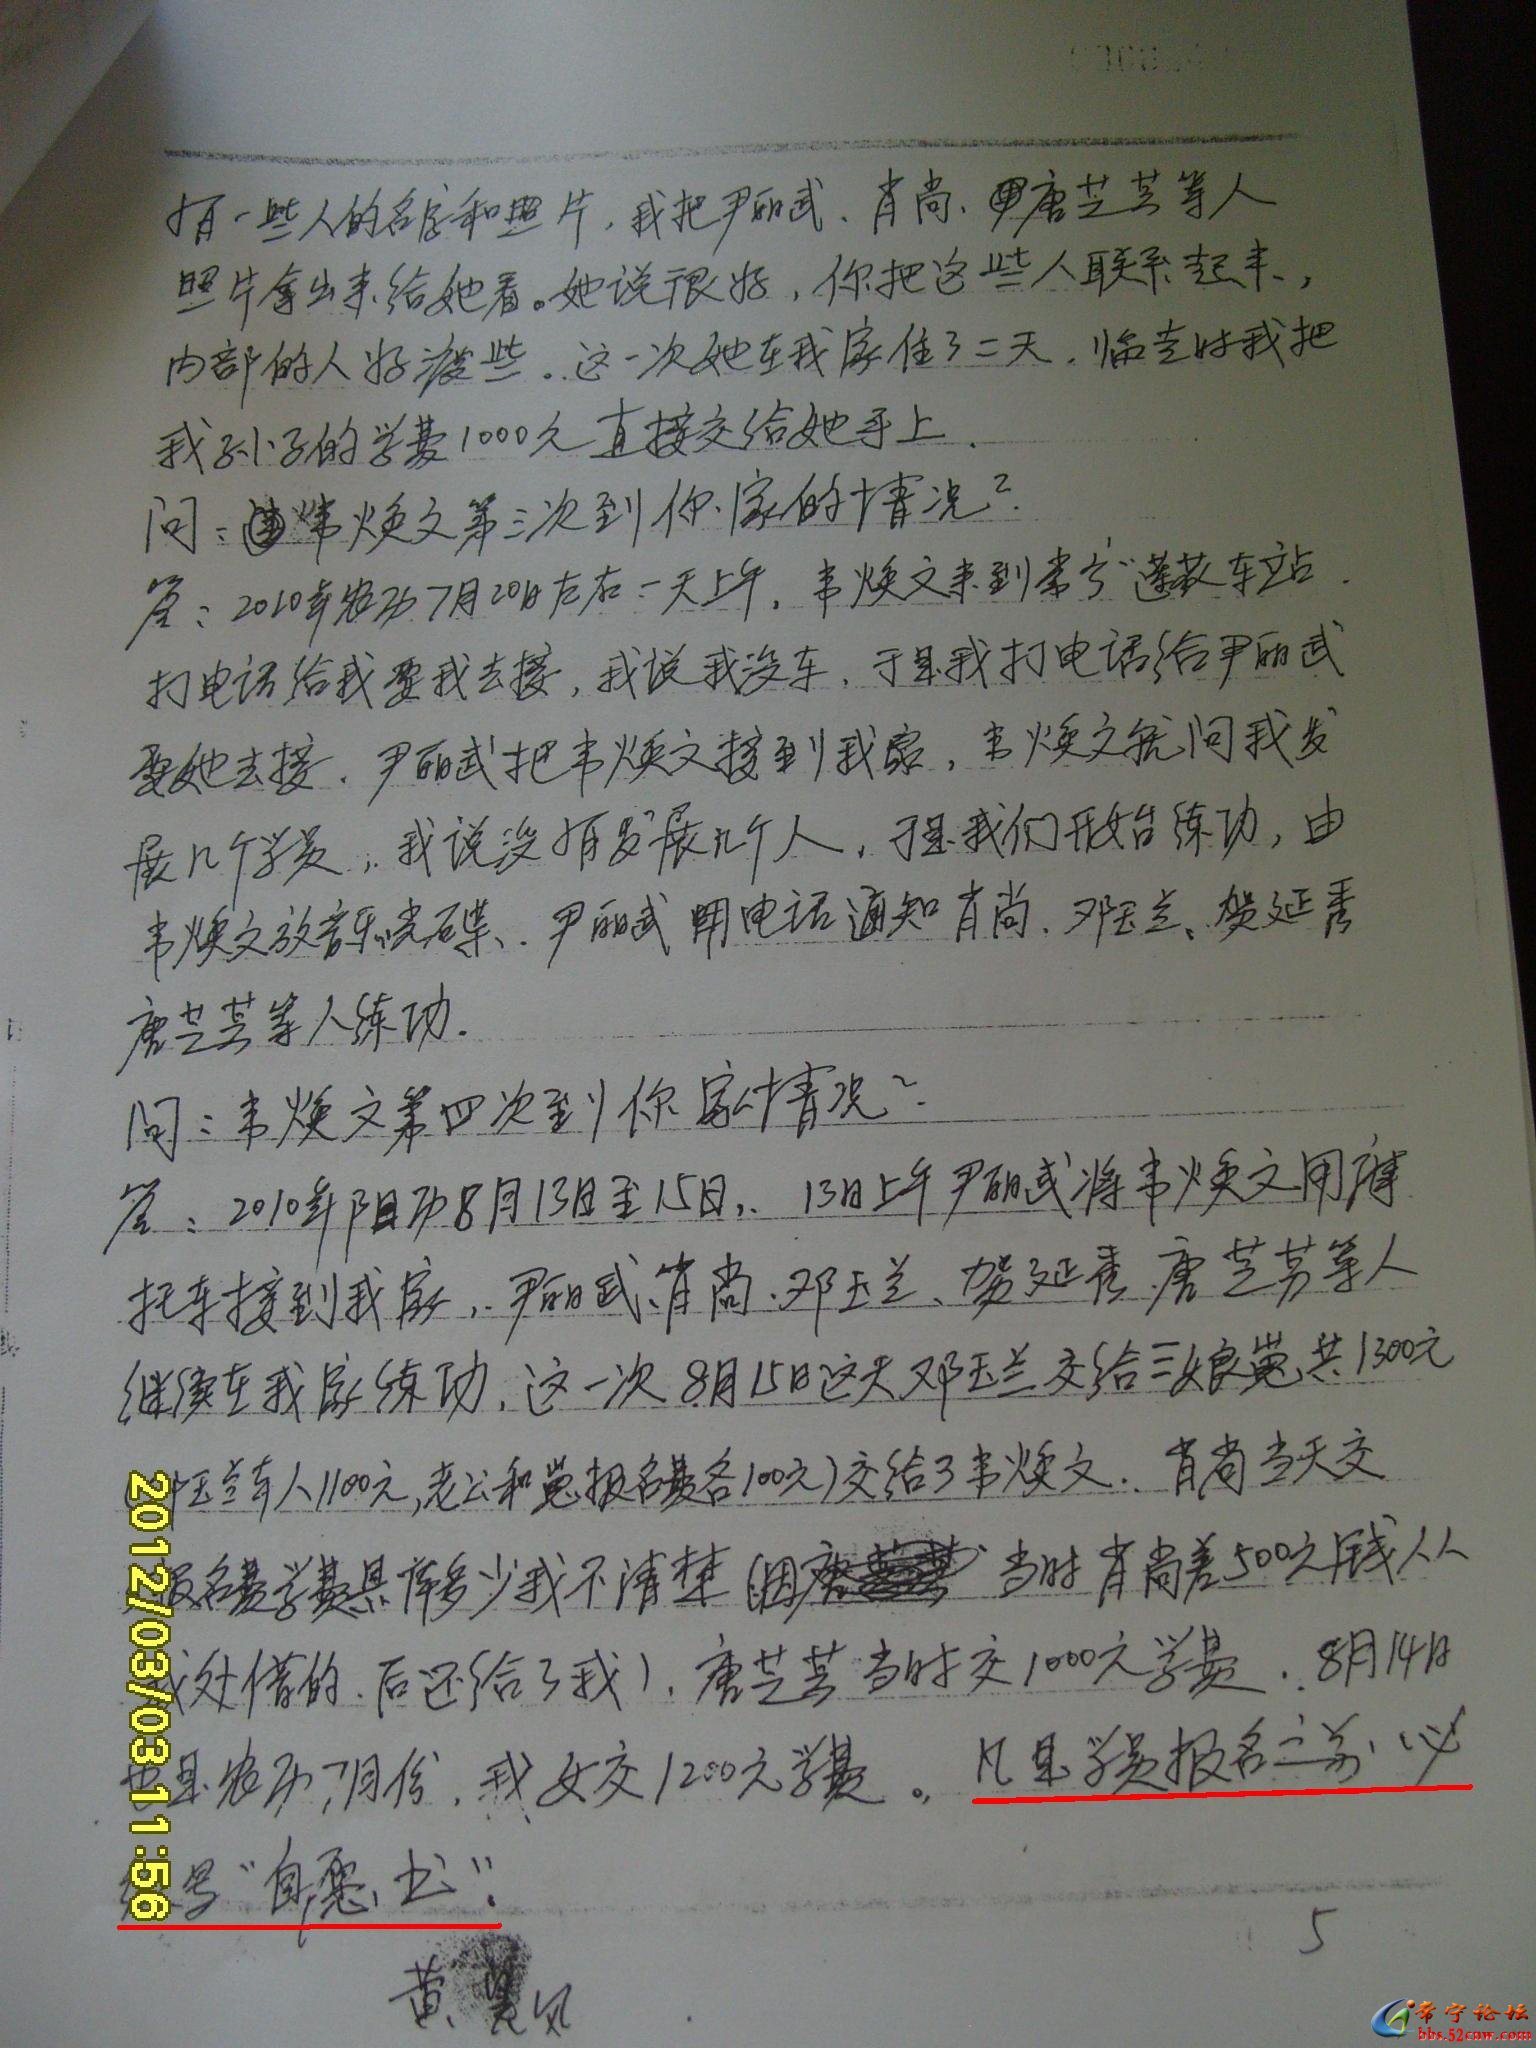 有一些人的名字和照片，我把尹丽武、肖尚、唐芝芸等人
照片拿出来给她看。她说很好，你把这些人联系起来，
内部的人好些。这一次她在我家住了二天，临走时我把
我孙子的学费1000元直接交给她手上．
问：韦焕文第三次到你家的情况？
答：2010年农历7月20日左右一天上午，韦焕文来到常宁车站．
打电话给我要我去接，我说我没车，于是我打电话给尹丽武
要她去接．尹丽武把韦焕文接到我家，韦焕文就问我发
展几个学员，我说没有发展几个人，于是我们开始练功，由
韦焕文放音乐光碟、尹丽武用电话通知肖尚、邓玉兰、贺延秀
唐芝芸等人练功．
问：韦焕文第四次到你家情况？
答：2010年阳历8月13日至15日，13日上午尹丽武将韦焕文用摩
托车接到我家，尹丽武、肖尚、邓玉兰、贺延秀、唐芝芸等人
继续在我家练功，这一次8月15日这天邓玉兰交给三娘共1300元
玉兰本人1100元，老公和报名费各100元）交给了韦焕文．肖尚当天交
报名费学费具体多少我不清楚（当时肖尚差500元钱从
我处借的．后还给了我），唐芝芸当时交1000元学费．8月14日
也是农历7月份，我女交1200元学费。凡是学员报名之前必
写“自愿书”．
5
黄
2012/03/03 11:56
常宁论坛
bbs.52cnw.com